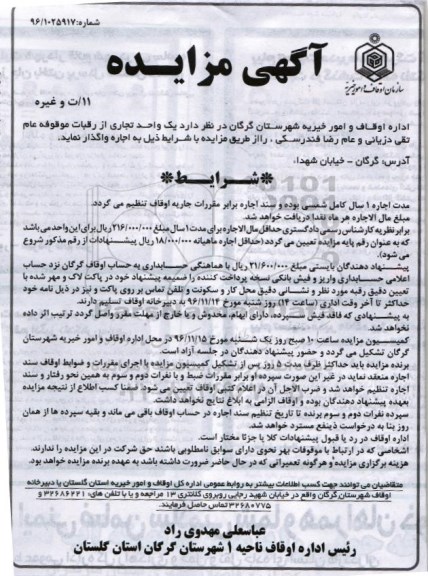 شماره: ۹۶/۱۰۲۵۹۱۷
سازمان اوقاف و امور خیریه
آگهی مزایده
۱۱/ت و غیره
اداره اوقاف و امور خیریه شهرستان گرگان در نظر دارد یک واحد تجاری از رقبات موقوفه عام
تقی دزیانی و عام رضا فندرسکی ، را از طریق مزایده با شرایط ذیل به اجاره واگذار نماید.
آدرس: گرگان - خیابان شهدا.
*شرایط*
مدت اجاره ۱ سال کامل شمسی بوده و سند اجاره برابر مقررات جاریه اوقاف تنظیم می گردد.
مبلغ مال الاجاره هر ماه نقدا دریافت خواهد شد.
برابر نظریه کارشناس رسمی دادگستری حداقل مال الاجاره برای مدت ۱ سال مبلغ ۲۱۶/۰۰۰/۰۰۰ ریال برای این واحد می باشد
که به عنوان رقم پایه مزایده تعیین می گردد (حداقل اجاره ماهیانه ۱۸/۰۰۰/۰۰۰ ریال پیشنهادات از رقم مذکور شروع
می شود).
پیشنهاد دهندگان بایستی مبلغ ۲۱/۶۰۰/۰۰۰ ریال با هماهنگی حسابداری به حساب اوقاف گرگان نزد حساب
اعلامی حسابداری واریز و فیش بانکی نسخه پرداخت کننده را ضمیمه پیشنهاد خود در پاکت لاک و مهر شده با
تعیین دقیق رقبه مورد نظر و نشانی دقیق محل کار و سکونت و تلفن تماس بر روی پاکت و نیز در ذیل نامه خود
حداکثر تا آخر وقت اداری (ساعت ۱۴) روز شنبه مورخ ۹۶/۱۱/۱۴ به دبیرخانه اوقاف تسلیم دارند.
به پیشنهادی که فاقد فیش سپرده، دارای ابهام، مخدوش و یا خارج از مهلت مقرر واصل گردد ترتیب اثر داده
نخواهد شد.
کمیسیون مزایده ساعت ۱۰ صبح روز یک شنبه مورخ ۹۶/۱۱/۱۵ در محل اداره اوقاف و امور خیریه شهرستان
گرگان تشکیل می گردد و حضور پیشنهاد دهندگان در جلسه آزاد است.
برنده مزایده باید حداکثر ظرف مدت ۵ روز پس از تشکیل کمیسیون مزایده با اجرای مقررات و ضوابط اوقاف سند
اجاره منعقد نماید در غیر این صورت سپرده او برابر مقررات ضبط و با نفرات دوم و سوم به همین نحو رفتار و سند
اجاره تنظیم خواهد شد و ضرب الاجل آن در اعلام کتبی اوقاف تعیین می شود. ضمنا کسب اطلاع از نتیجه مزایده
بعهده پیشنهاد دهندگان بوده و اوقاف الزامی به ابلاغ نتایج نخواهد داشت.
سپرده نفرات دوم و سوم برنده تا تاریخ تنظیم سند اجاره در حساب اوقاف باقی می ماند و بقیه سپرده ها از همان
روز بنا به درخواست ذینفع مسترد خواهد شد.
اداره اوقاف در رد یا قبول پیشنهادات کلا یا جزئا مختار است.
اشخاصی که در ارتباط با موقوفات بهر نحوی دارای سوابق نامطلوبی باشند حق شرکت در این مزایده را ندارند.
هزینه برگزاری مزایده و هرگونه تعمیراتی که در حال حاضر ضرورت داشته باشد به عهده برنده مزایده خواهد بود.
متقاضیان می توانند جهت کسب اطلاعات بیشتر به روابط عمومی اداره کل اوقاف و امور خیریه استان گلستان یا دبیرخانه
اوقاف شهرستان گرگان واقع در خیابان شهید رجایی روبروی کلانتری ۱۳ مراجعه و یا با تلفن های: ۳۲۶۸۶۲۲۱ و
۳۲۶۸۰۷۷۵ تماس حاصل فرمایند.
عباسعلی مهدوی راد
رئیس اداره اوقاف ناحیه ۱ شهرستان گرگان استان گلستان